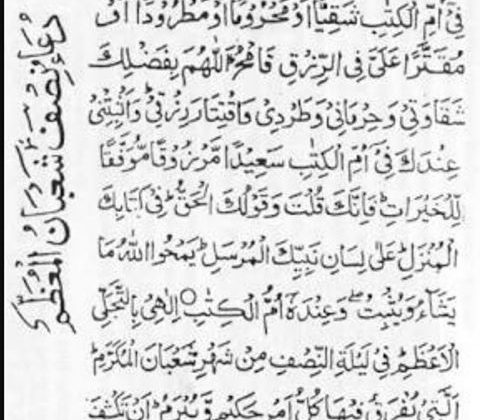 فِىْٓ اُمِّ الْكِتٰبِ شَقِيًّا اَوْ مَحْرُوْمًا اَوْ مَطْرُوْدًا اَوْ
مُقَتَّرًا عَلَىَّ فِى الرِّزْقِ فَامْحُ اللّٰهُمَّ بِفَضْلِكَ
شَقَاوَتِىْ وَحِرْمَانِىْ وَطَرْدِىْ وَاقْتِتَارَ رِزْقِىْ وَاَثْبِتْنِىْ
عِنْدَكَ فِىْٓ اُمِّ الْكِتٰبِ سَعِيْدًا مَّرْزُوْقًا مُّوَفَّقًا
لِّلْخَيْرَاتِ فَاِنَّكَ قُلْتَ وَقَوْلُكَ الْحَقُّ فِىْ كِتَابِكَ
الْمُنَزَّلِ عَلٰى لِسَانِ نَبِيِّكَ الْمُرْسَلِ يَمْحُوا اللّٰهُ مَا
يَشَآءُ وَيُثْبِتُ وَعِنْدَهٗٓ اُمُّ الْكِتٰبِ ○ اِلٰهِىْ بِالتَّجَلِّىْ
الْاَعْظَمِ فِىْ لَيْلَةِ النِّصْفِ مِنْ شَهْرِ شَعْبَانَ الْمُكَرَّمِ
الَّتِىْ يُفْرَقُ فِيْهَا كُلُّ اَمْرٍ حَكِيْمٍ وَّيُبْرَمُ اَنْ تَكْشِفَ
دعاء نصف شعبان المعظم